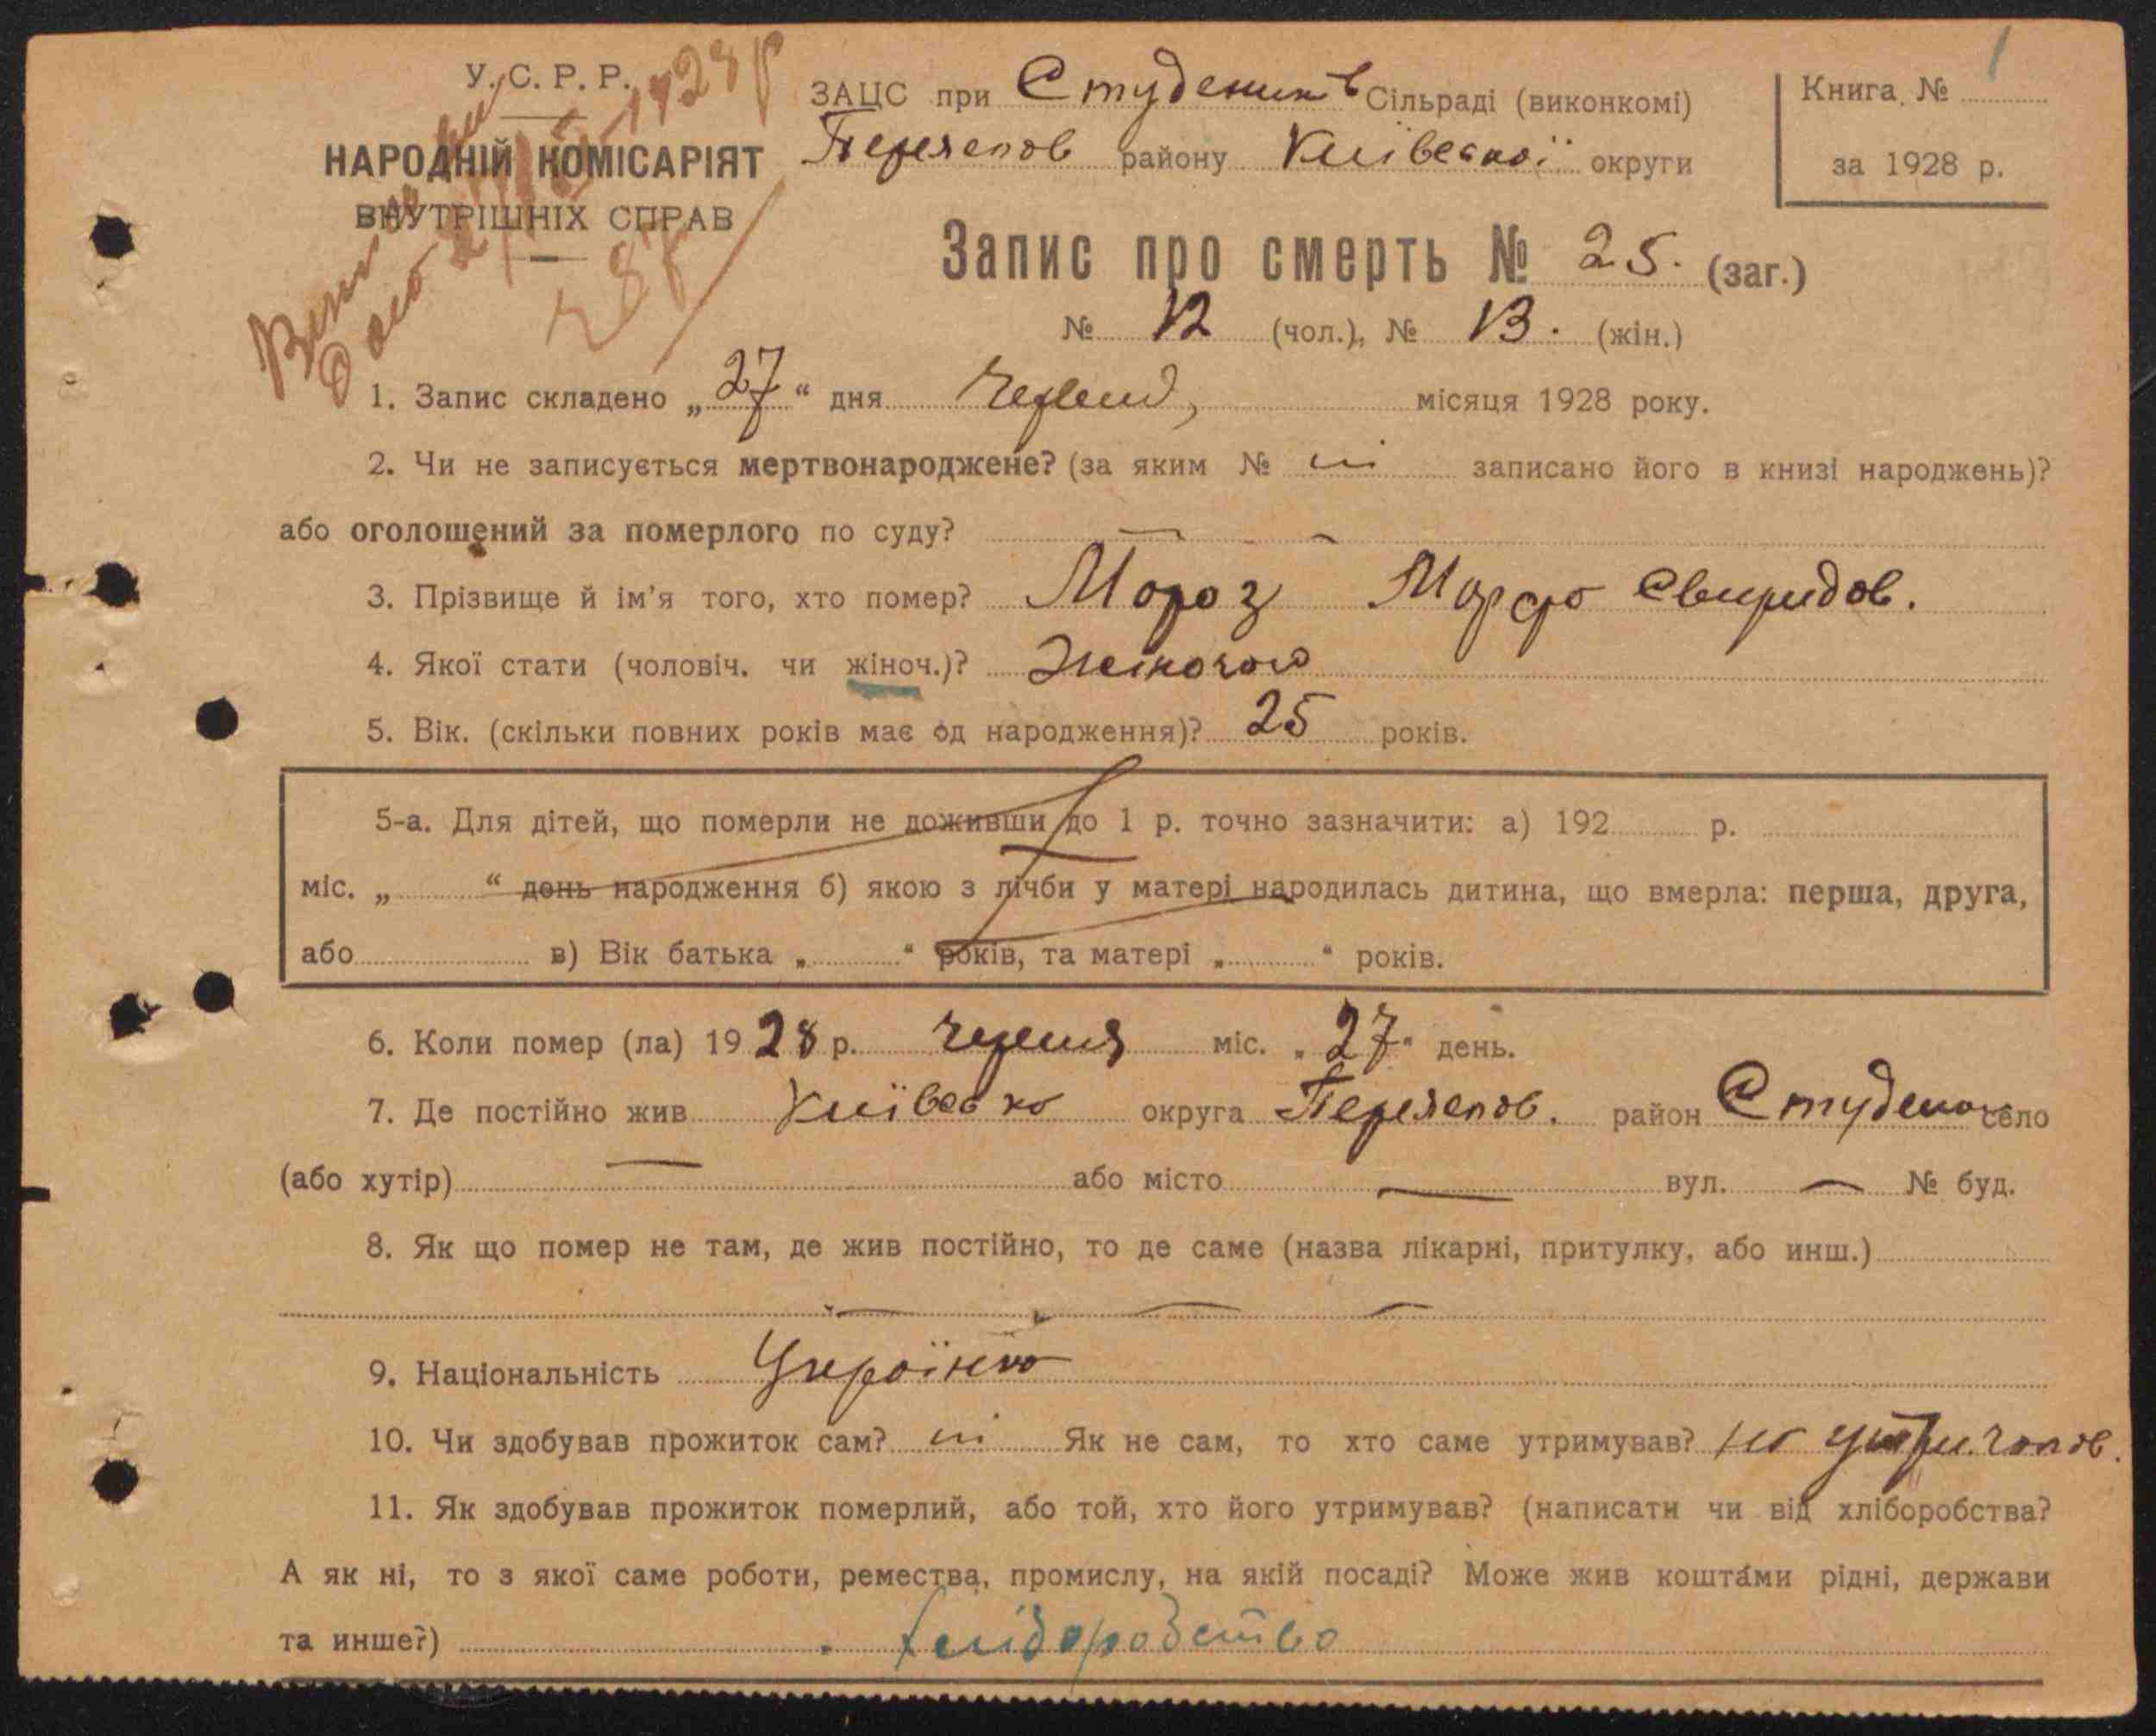 У. С. Р. Р.
НАРОДНІЙ КОМІСАРІЯТ
ВНУТРІШНІХ СПРАВ
1928 р
ЗАЦС при Студеників Сільраді (виконкомі)
Переяслов району Київської округи
Книга № 1
за 1928 р.
Запис про смерть № 25. (заг.)
№ 12 (чол.), № 13. (жін.)
1. Запис складено „27“ дня Червня, місяця 1928 року.
2. Чи не записується мертвонароджене? (за яким № ні записано його в книзі народжень)?
або оголошений за померлого по суду? — —
3. Прізвище й ім'я того, хто помер? Мороз Марфа Свиридов.
4. Якої стати (чоловіч. чи жіноч.)? Жіночою
5. Вік. (скільки повних років має од народження)? 25 років.
5-а. Для дітей, що померли не доживши до 1 р. точно зазначити: а) 192 р.
міс. „ “ день народження б) якою з лічби у матері народилась дитина, що вмерла: перша, друга,
або в) Вік батька „ “ років, та матері „ “ років.
6. Коли помер (ла) 1928 р. червня міс. „27“ день.
7. Де постійно жив Київсько округа Переяслов. район Студеники село
(або хутір) — або місто — вул. — № буд.
8. Як що помер не там, де жив постійно, то де саме (назва лікарні, притулку, або инш.)
— — —
9. Національність Українка
10. Чи здобував прожиток сам? ні Як не сам, то хто саме утримував? на
11. Як здобував прожиток померлий, або той, хто його утримував? (написати чи від хліборобства?
А як ні, то з якої саме роботи, ремества, промислу, на якій посаді? Може жив коштами рідні, держави
та инше?) хліборобство